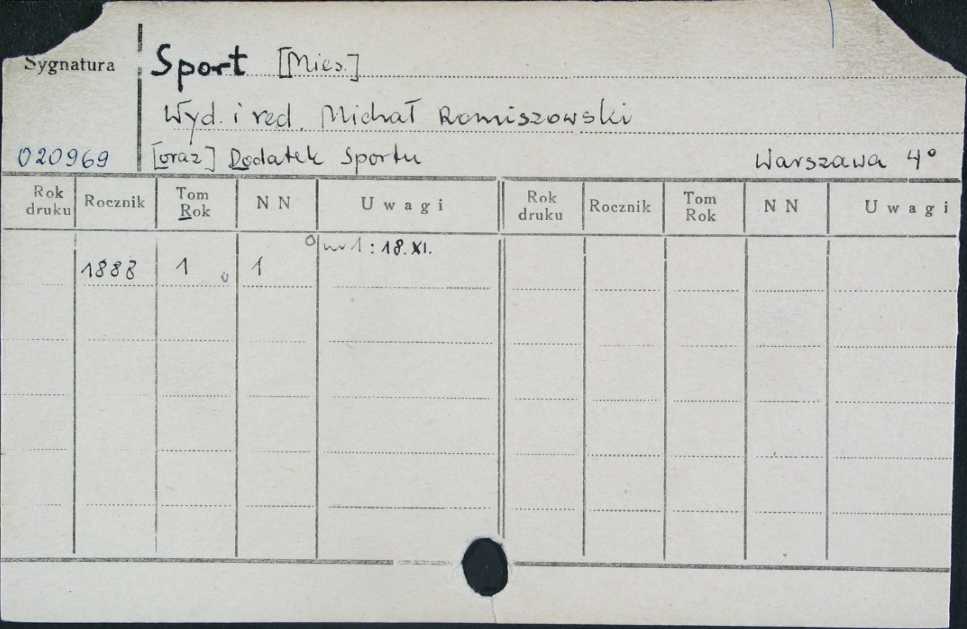 Sygnatura Sport [Mies.]
Wyd. i red. Michał Romiszowski
020969 [oraz] Dodatek Sportu Warszawa 4°
Rok druku Rocznik Tom Rok NN Uwagi Rok druku Rocznik Tom Rok NN Uwagi
nr 1 : 18. XI.
1888 1 1